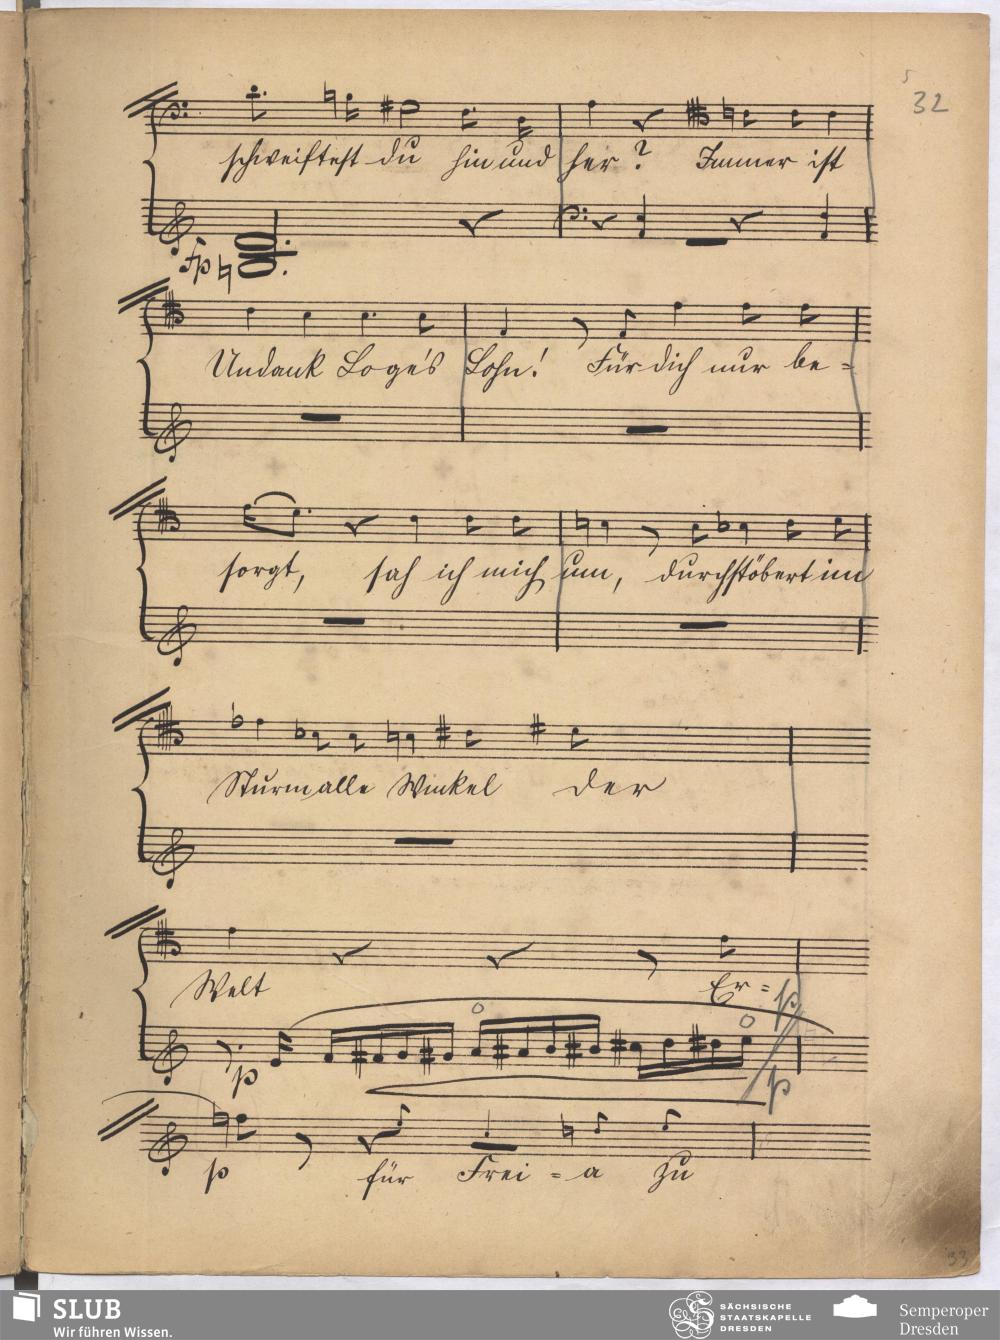 32
schweiftest du hin und her? Immer ist
fp
Undank Loge's Lohn! Für dich nur be=
sorgt, sah ich mich um, durchstöbert im
Sturm alle Winkel der
Welt Er=
p
p
p
p für Frei=a zu
33
SLUB
Wir führen Wissen.
SÄCHSISCHE
STAATSKAPELLE
DRESDEN
Semperoper
Dresden